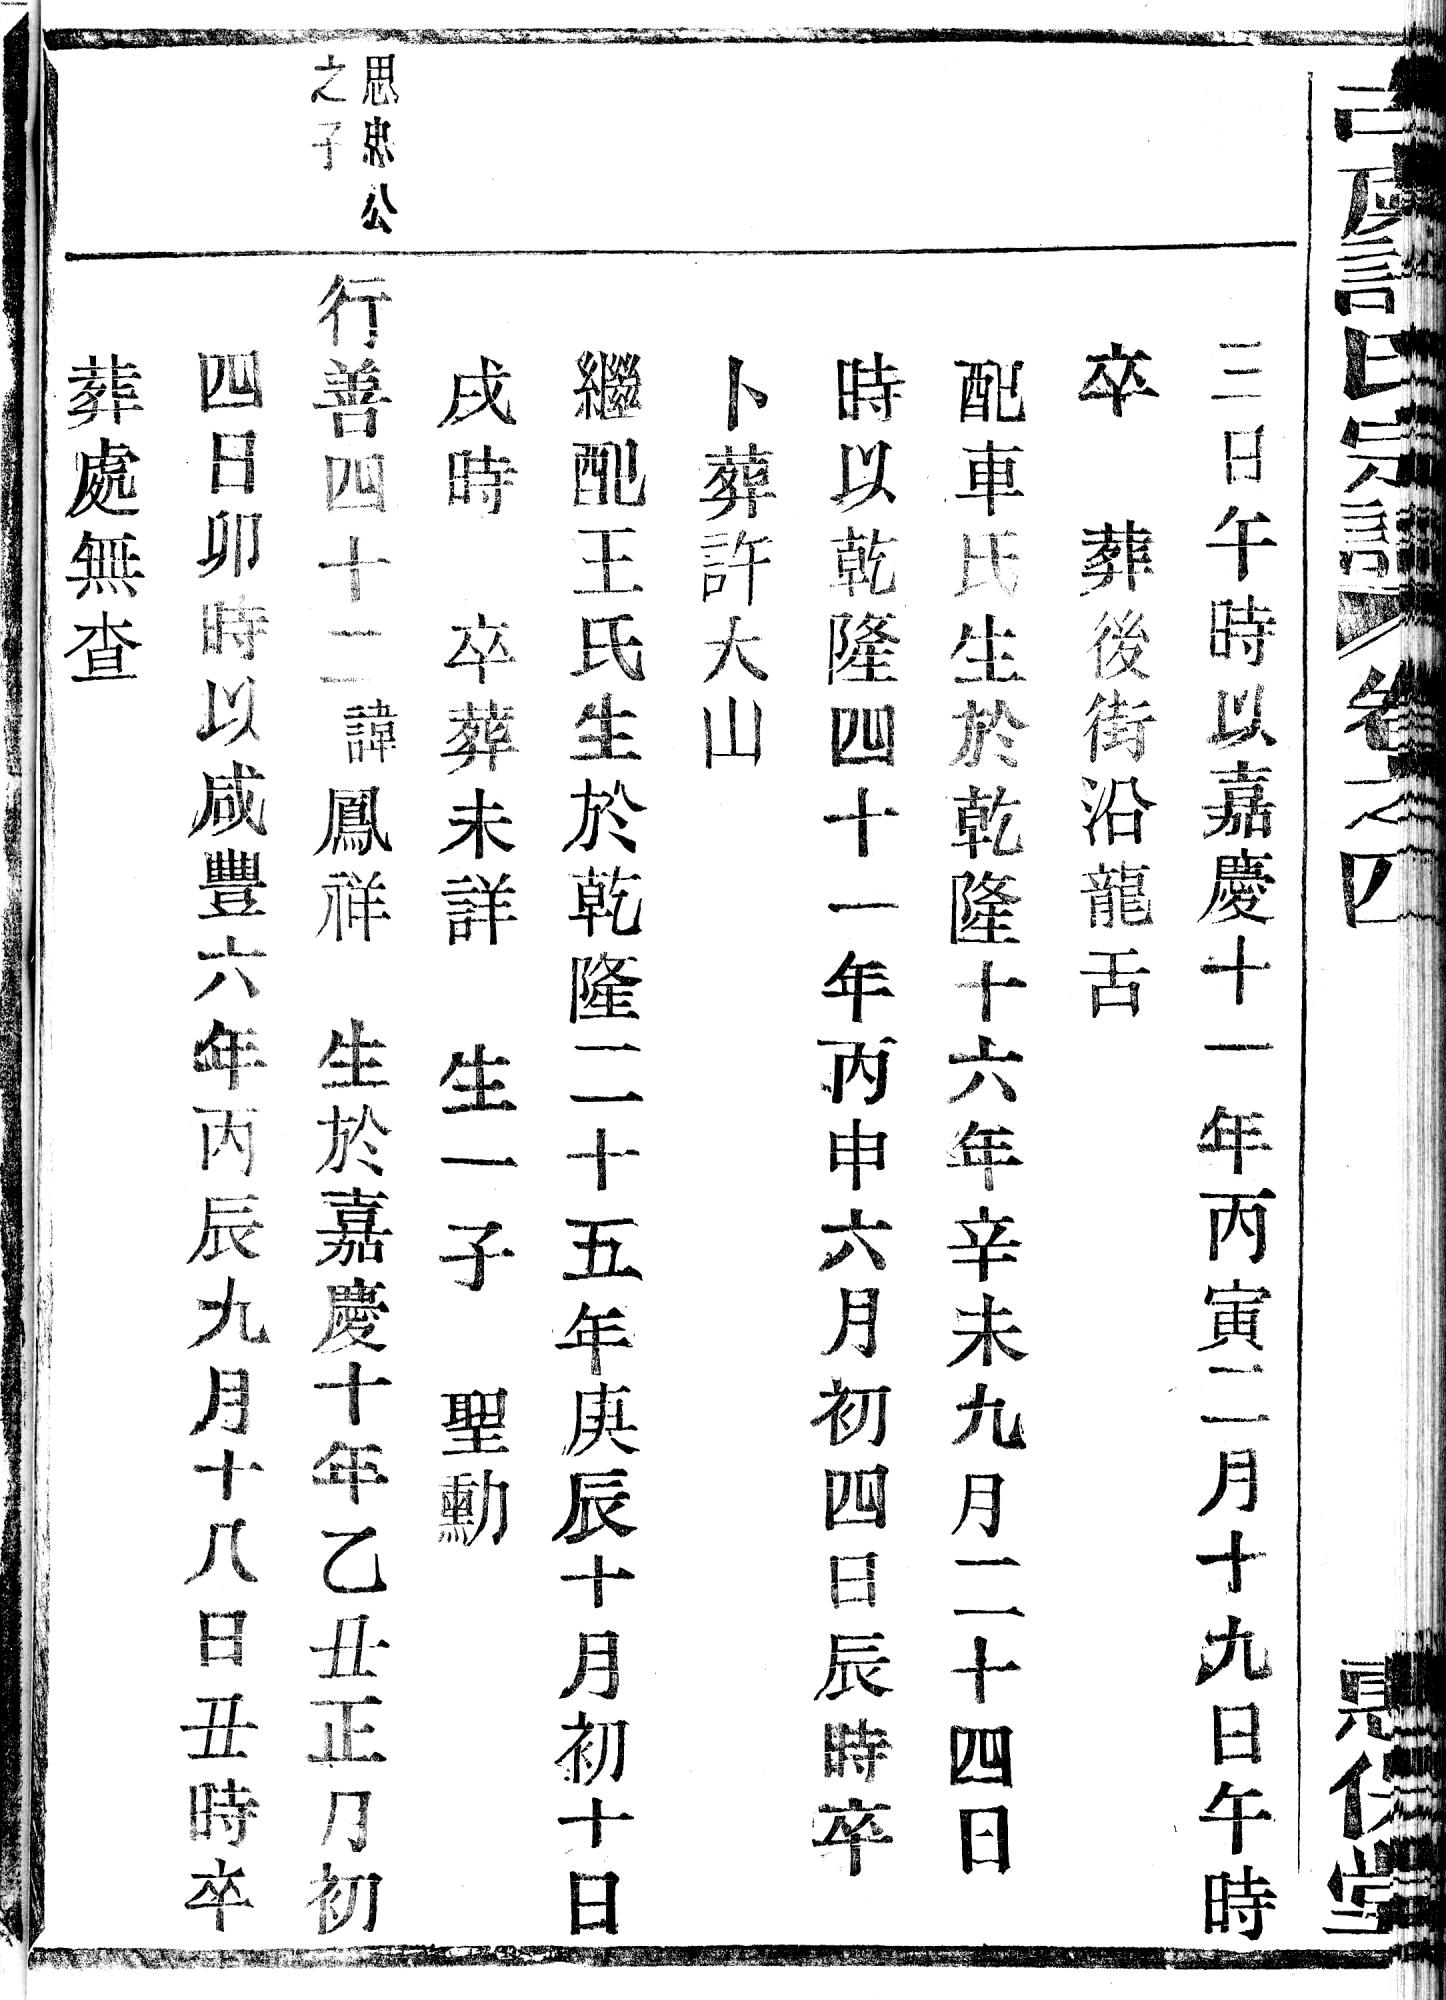 宗譜 卷之四
三日午時以嘉慶十一年丙寅二月十九日午時
卒 葬後街沿龍舌
配車氏生於乾隆十六年辛未九月二十四日
時以乾隆四十一年丙申六月初四日辰時卒
卜葬許大山
繼配王氏生於乾隆二十五年庚辰十月初十日
戌時 卒葬未詳 生一子 聖勳
思忠公
之子
行善四十二諱鳳祥 生於嘉慶十年乙丑正月初
四日卯時以咸豐六年丙辰九月十八日丑時卒
葬處無查